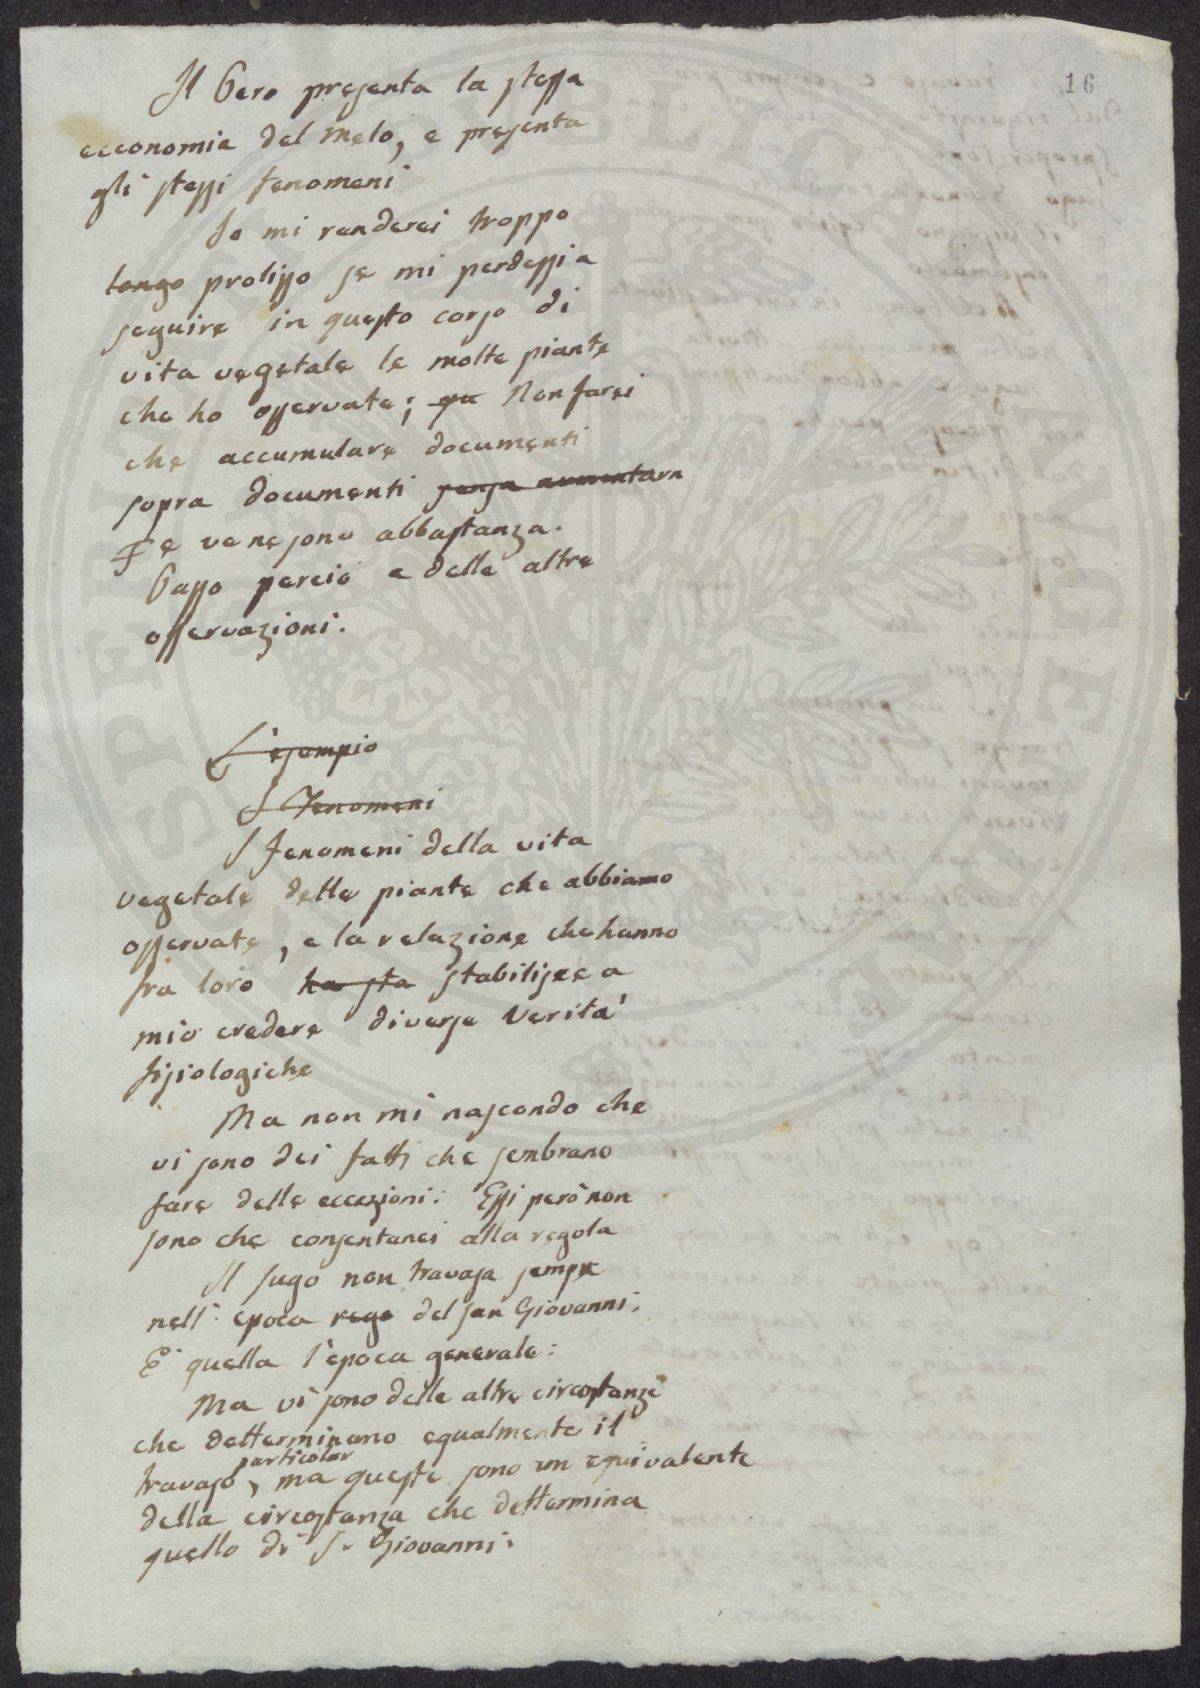 16
Il Pero presenta la stessa
ecconomia del Melo, e presenta
gli stessi fenomeni
Io mi renderei troppo
longo prolisso se mi perdessi a
seguire in questo corso di
vita vegetale le molte piante
che ho osservate; qu Non farei
che accumulare documenti
sopra documenti senza aumentare
e ve ne sono abbastanza.
Passo perciò a delle altre
osservazioni.
L'esempio
I Fenomeni
I fenomeni della vita
vegetale delle piante che abbiamo
osservate, e la relazione che hanno
fra loro ha sta stabilisce a
mio credere diverse Verita'
fisiologiche
Ma non mi nascondo che
vi sono dei fatti che sembrano
fare delle eccezioni: Essi però non
sono che consentanei alla regola
Il sugo non travasa sempre
nell' epoca rego del san Giovanni;
E' quella l'epoca generale:
Ma vi sono delle altre circostanze
che detterminano egualmente il
particolar
travaso, ma queste sono un equivalente
della circostanza che dettermina
quello di S. Giovanni: